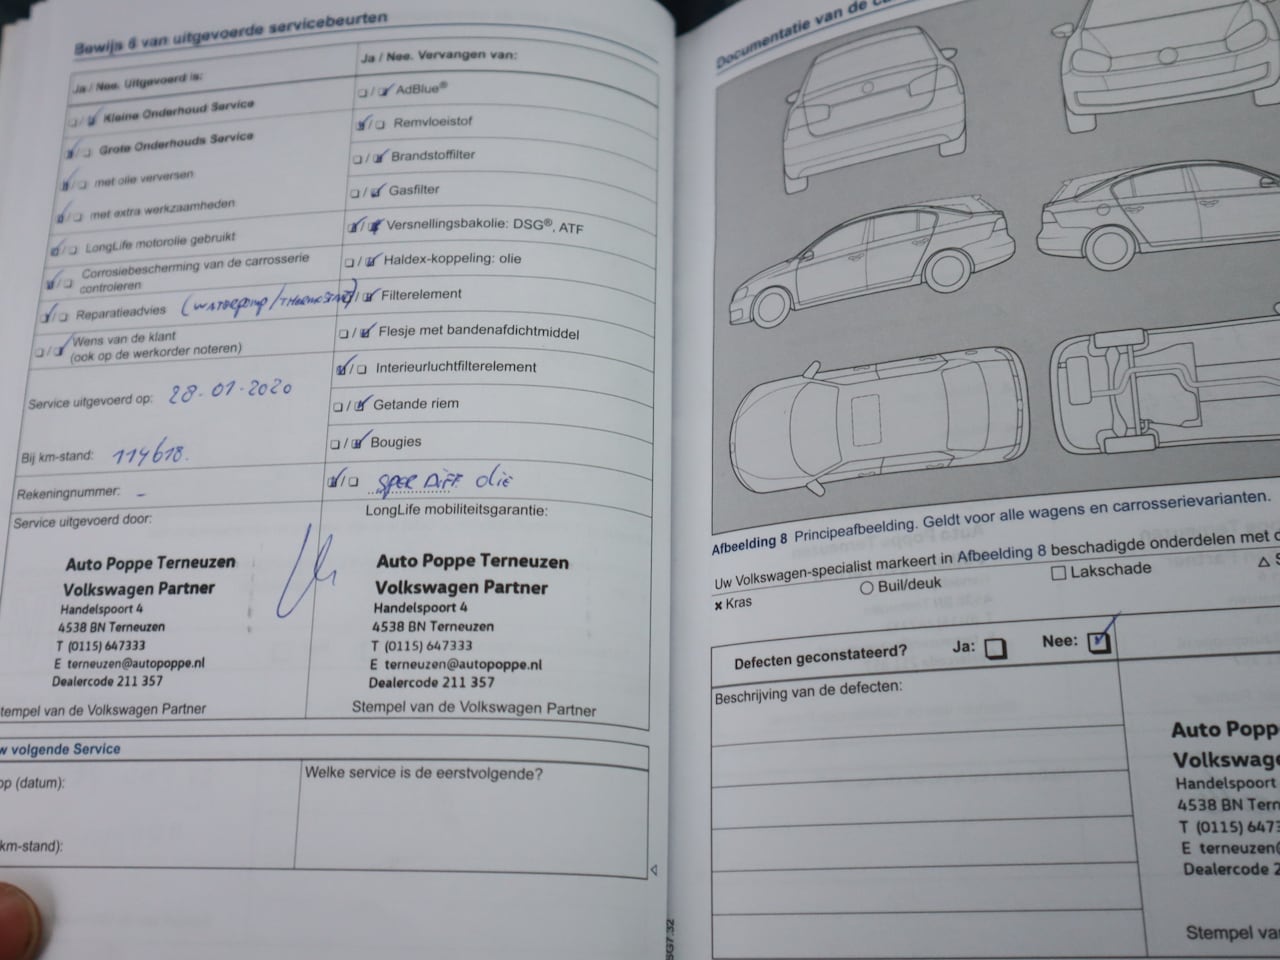 Bewijs 6 van uitgevoerde servicebeurten
Ja / Nee. Uitgevoerd is:
Kleine Onderhoud Service
Grote Onderhouds Service
met olie verversen
met extra werkzaamheden
LongLife motorolie gebruikt
Corrosiebescherming van de carrosserie
controleren
Reparatieadvies (WATERPOMP/THERMOSTAAT)
Wens van de klant
(ook op de werkorder noteren)
Service uitgevoerd op: 28-01-2020
Bij km-stand: 114618.
Rekeningnummer: -
Service uitgevoerd door:
Auto Poppe Terneuzen
Volkswagen Partner
Handelspoort 4
4538 BN Terneuzen
T (0115) 647333
E terneuzen@autopoppe.nl
Dealercode 211 357
tempel van de Volkswagen Partner
Ja / Nee. Vervangen van:
AdBlue®
Remvloeistof
Brandstoffilter
Gasfilter
Versnellingsbakolie: DSG®, ATF
Haldex-koppeling: olie
Filterelement
Flesje met bandenafdichtmiddel
Interieurluchtfilterelement
Getande riem
Bougies
SPER DIFF olie
LongLife mobiliteitsgarantie:
Auto Poppe Terneuzen
Volkswagen Partner
Handelspoort 4
4538 BN Terneuzen
T (0115) 647333
E terneuzen@autopoppe.nl
Dealercode 211 357
Stempel van de Volkswagen Partner
w volgende Service
op (datum):
km-stand):
Welke service is de eerstvolgende?
SG7.32
Documentatie van de
Afbeelding 8 Principeafbeelding. Geldt voor alle wagens en carrosserievarianten.
Uw Volkswagen-specialist markeert in Afbeelding 8 beschadigde onderdelen met
× Kras
Buil/deuk
Lakschade
Defecten geconstateerd? Ja: Nee:
Beschrijving van de defecten:
Auto Popp
Volkswage
Handelspoort
4538 BN Tern
T (0115) 647
E terneuzen
Dealercode 2
Stempel va